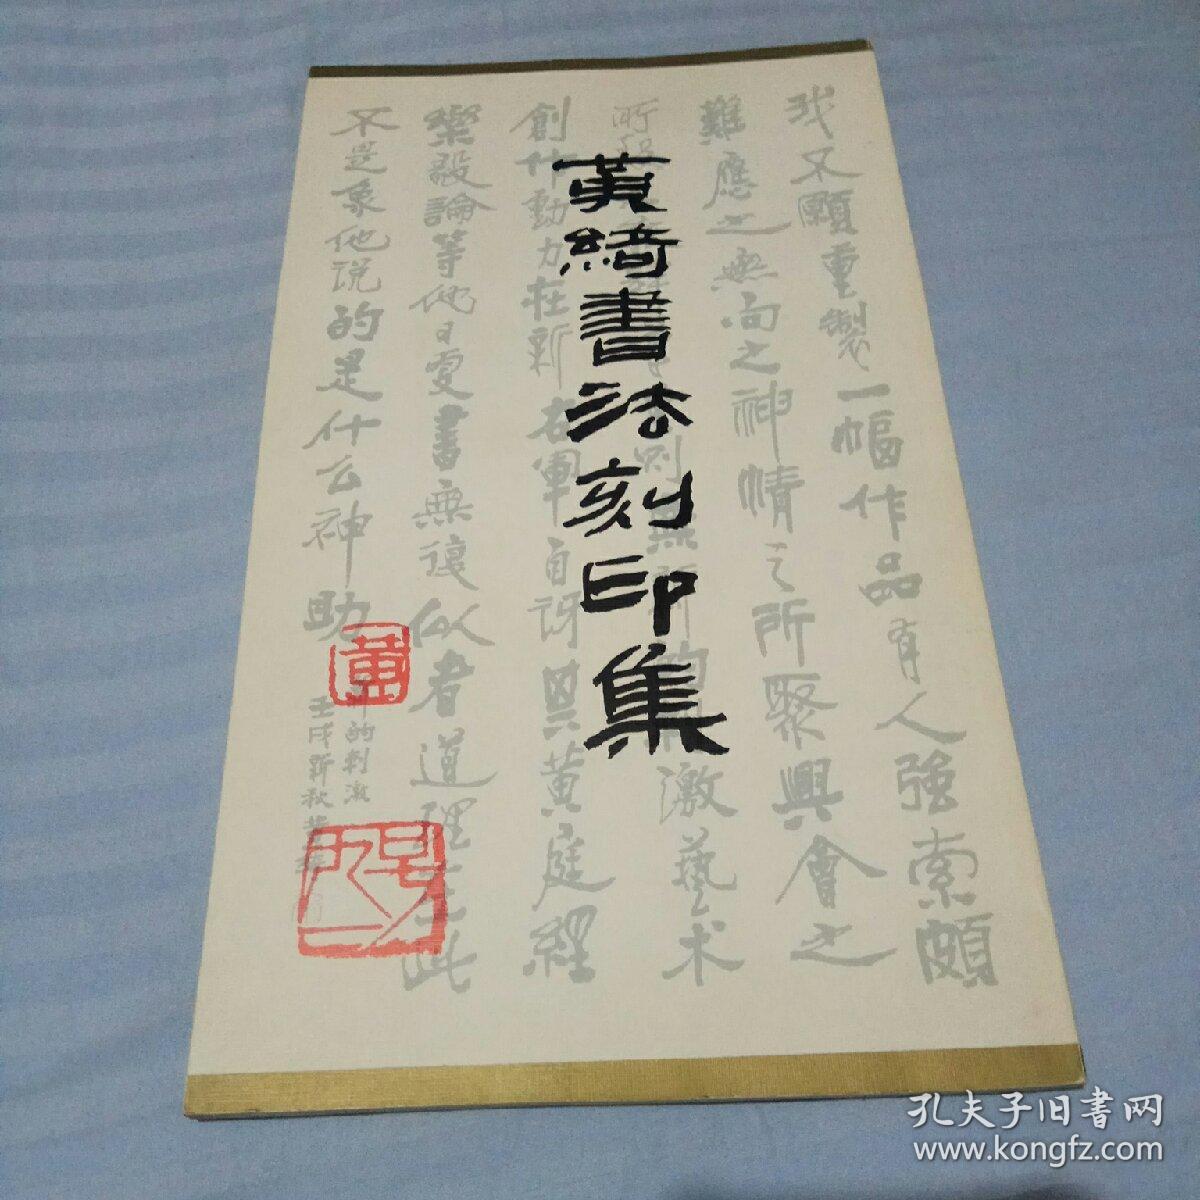 黄綺書法刻印集
我不願重製一幅作品有人強索頗
難應之無向之神情之所聚興會之
所
激藝术
創作動力在新右軍自訝其黄庭經
樂毅論等他日更書無復似者道理在此
不是象他说的是什么神助
的刺激
壬戌新秋黄綺
黄
九一
孔夫子旧書网
www.kongfz.com